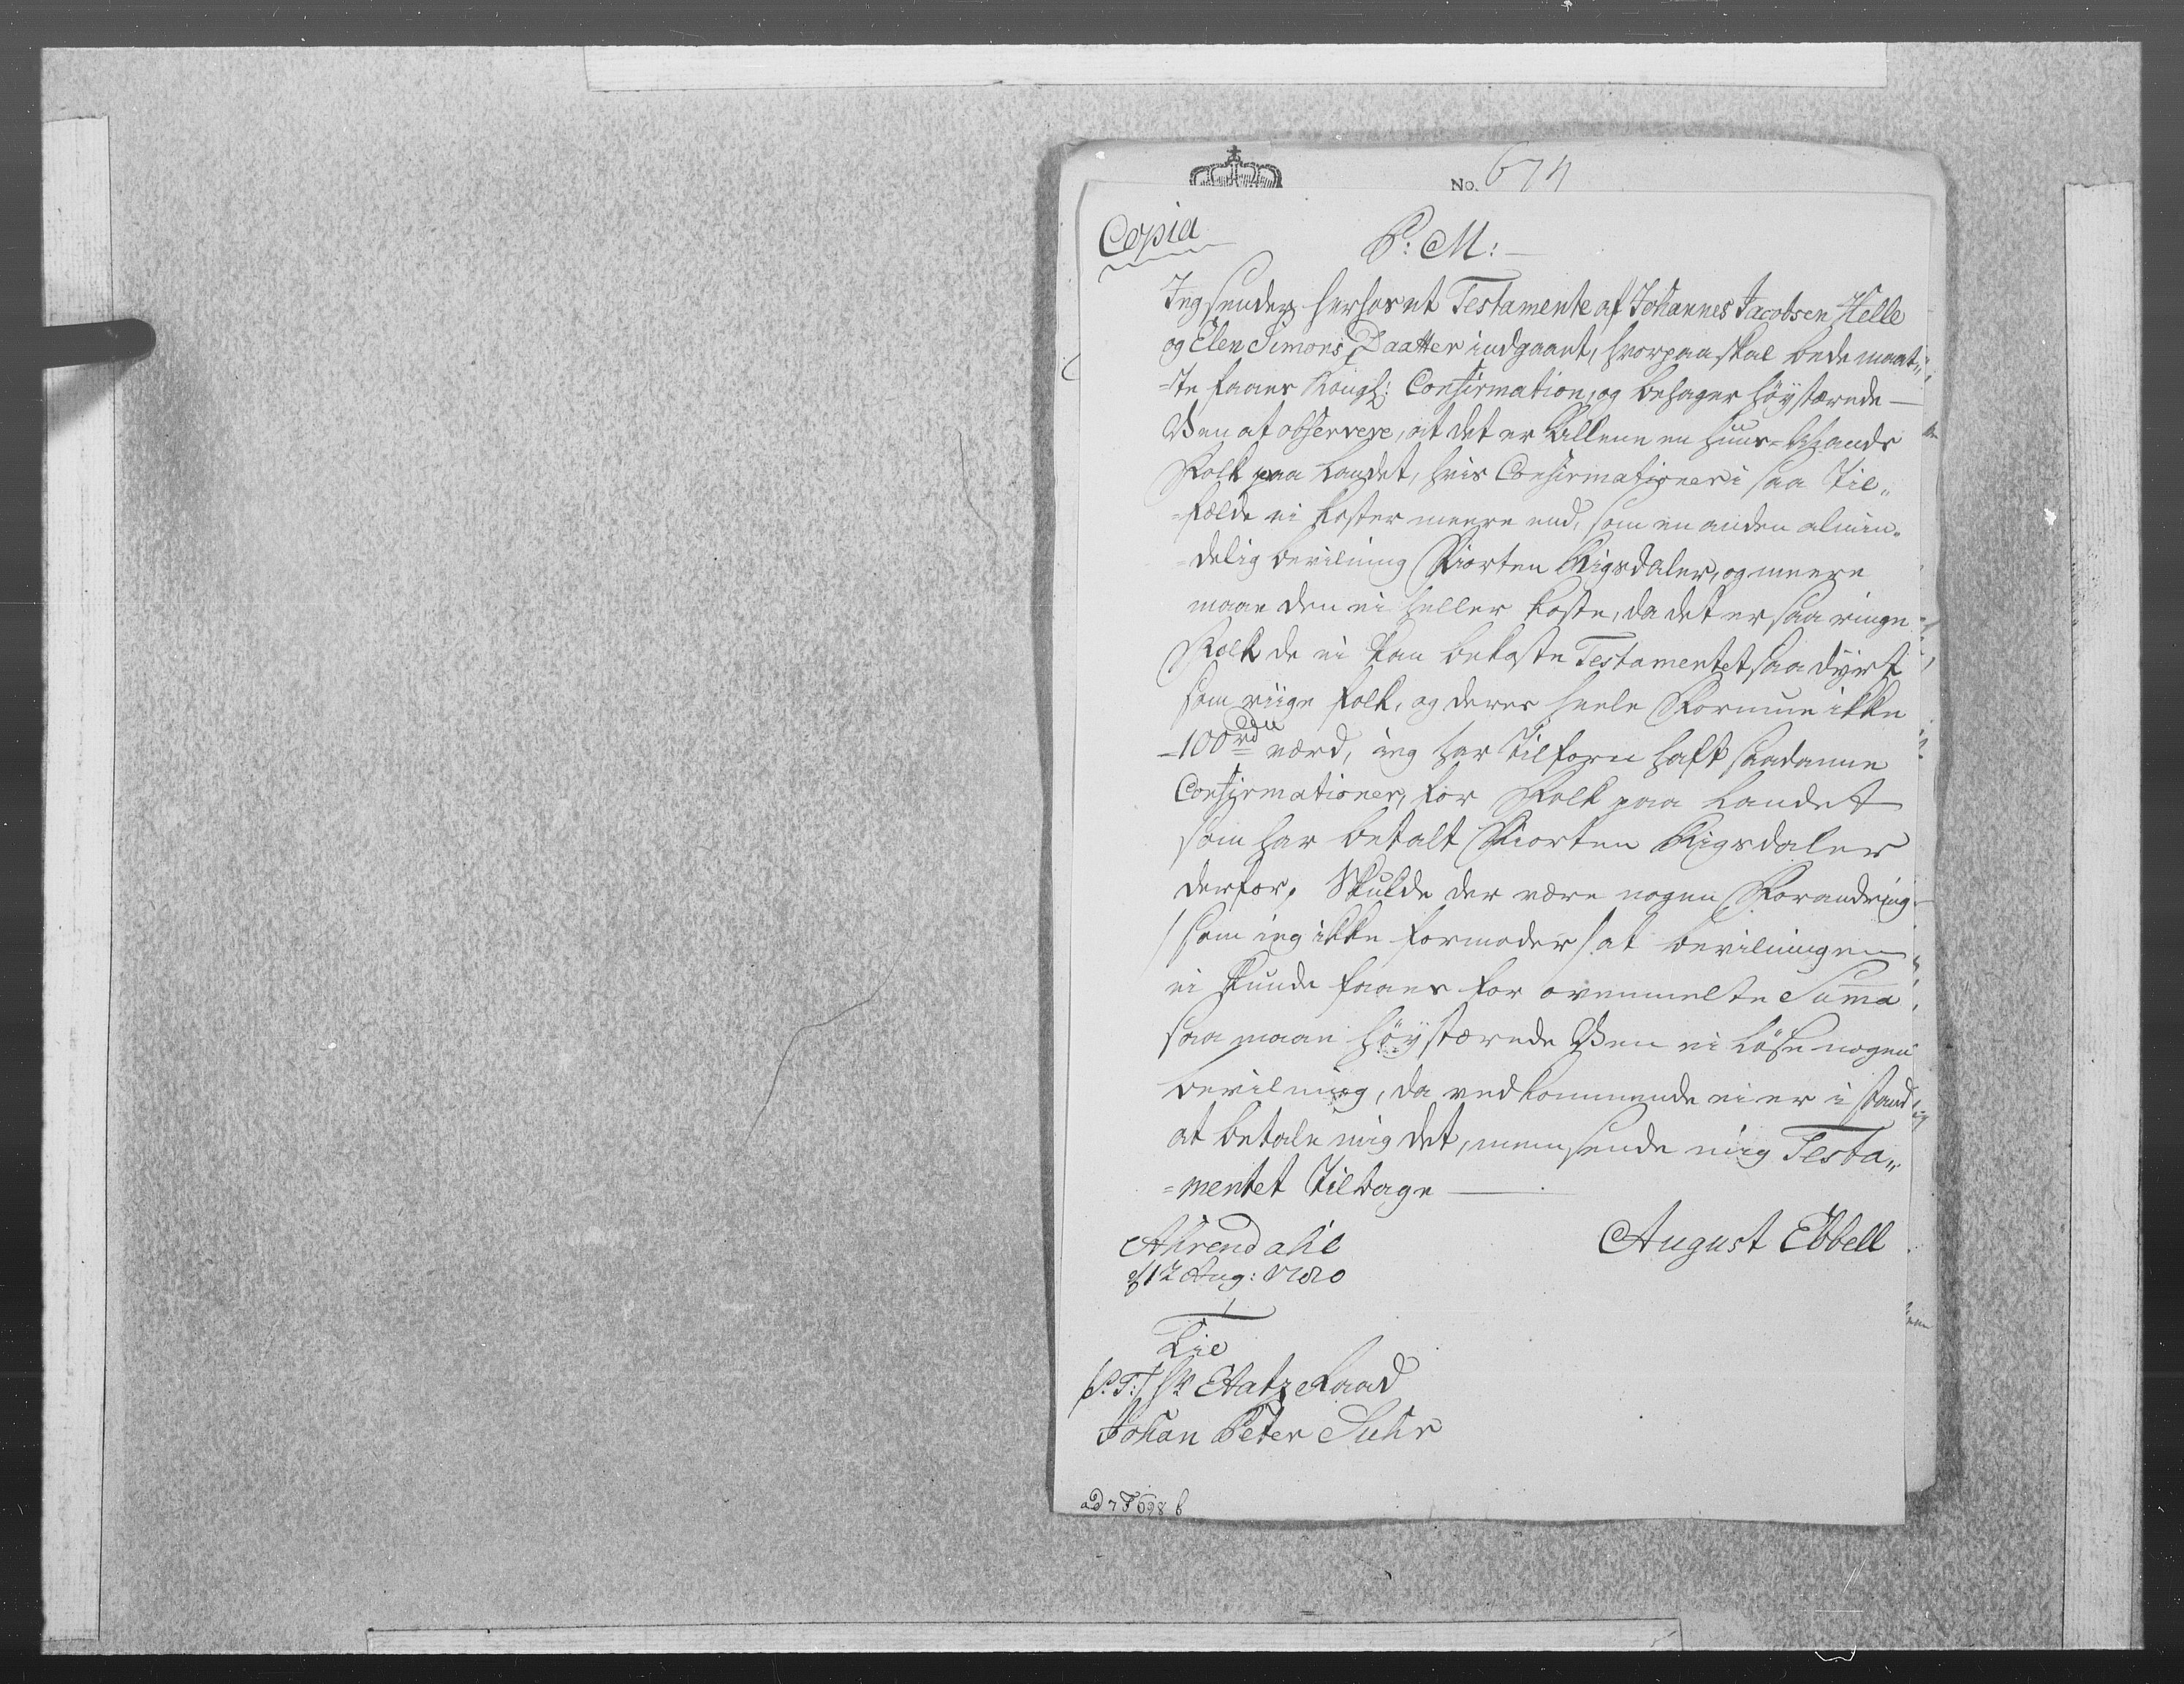 No. 674
Copia
P: M:
Jeg sender herhos et Testamente af Johannes Jacobsen Helle
og Elen Simons Daatter indgaaet, hvorpaa skal bede maat„
=te faaes Kongl: Confirmation, og behager høystærede
Ven at observere, at det er allene en Huus-Mands
Folk paa Landet, hvis Confirmationer i saa Til„
=fælde ei koster meere end, som en anden almin„
=delig bevilning Fiorten Rigsdaler, og meere
maae den ei heller koste, da det er saa ringe
Folk de ei kan bekoste Testamentet saa dyrt
som riige Folk, og deres heele Formue ikke
100 rd værd, ieg har tilforn haft saadanne
Confirmationer, for Folk paa Landet
som har betalt Fiorten Rigsdaler
derfor, Skulde der være nogen Forandring
/som ieg ikke formoder/ at bevilningen
ei kunde faaes for ovenmelte Suma
saa maae høystærede Ven ei løse nogen
bevilning, da vedkommende ei er i stand
at betale mig det, men sende mig Testa„
=mentet tilbage
Ahrendahl
d 12 Aug: 1780
August Ebbell
Til
/S: T:/ Hr Etatz Raad
Johan Peter Suhr
ad 7 F 698 b